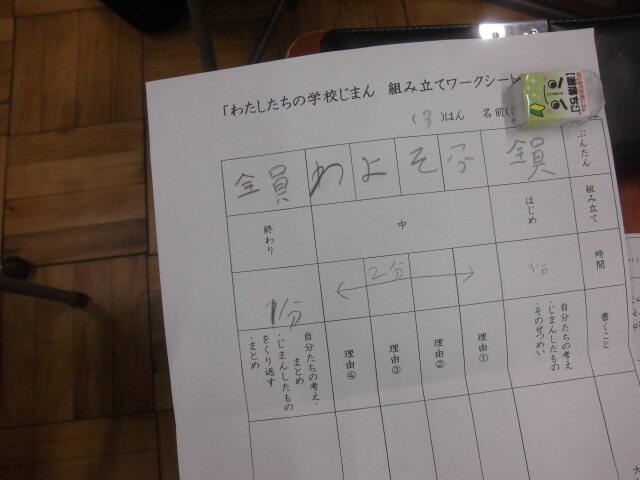 「わたしたちの学校じまん 組み立てワークシート
(3)はん 名前(
ぶんたん
全員
分
そ
よ
わ
全員
組み立て
はじめ
中
終わり
時間
3分
2分
1分
書くこと
自分たちの考え
・じまんしたもの
・そのせつめい
理由①
理由②
理由③
理由④
自分たちの考え・
まとめ
・じまんしたもの
をくり返す
・まとめ